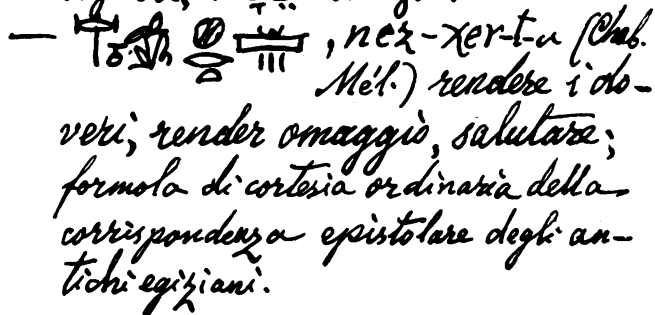 — , nez-χer-t-u (Chab.
Mél.) rendere i do-
veri, render omaggio, salutare;
formola di cortesia ordinaria della
corrispondenza epistolare degli an-
tichi egiziani.